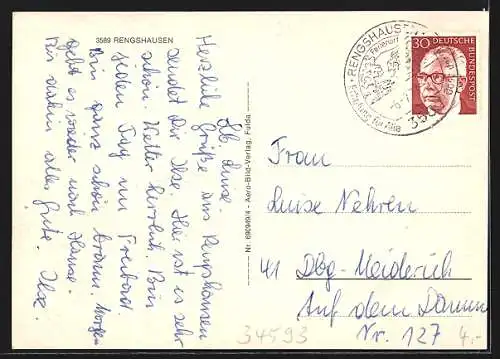 3589 RENGSHAUSEN
Lb. Luise.
Herzliche Grüße aus Rengshausen
sendet Dir Ilse. Hier ist es sehr
schön. Wetter herrlich. Bin
jeden Tag im Freibad.
Bin ganz schön braun. Morgen
geht es wieder nach Hause.
Bis dahin alles Gute. Ilse.
Nr. 690949/4 - Aero-Bild-Verlag, Fulda
RENGSHAUSEN
Ferienort
358
30 DEUTSCHE BUNDESPOST
Frau
Luise Nehren
41 Dbg-Meiderich
Auf dem Damm
Nr. 127
34593
4,-